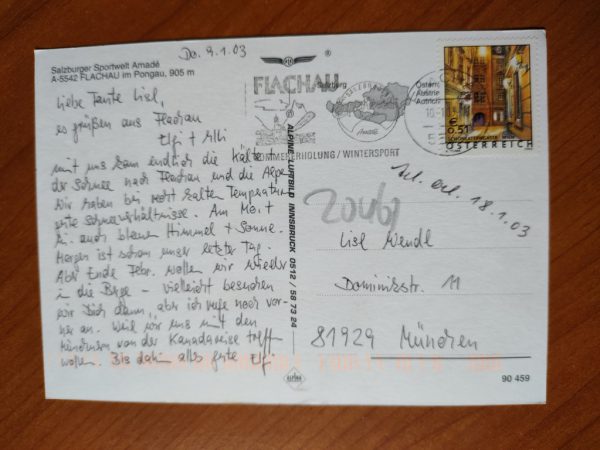 Do. 9.1.03
Salzburger Sportwelt Amadé
A-5542 FLACHAU im Pongau, 905 m
Liebe Tante Lisl,
es grüßen aus Flachau
Elfi + Alli
mit uns kam endlich die Kälte
der Schnee nach Flachau und die Alpen
Wir haben bei recht kalten Temperaturen
gute Schneeverhältnisse. Am Mo. +
Di. auch blauen Himmel + Sonne.
Morgen ist schon unser letzter Tag.
Aber Ende Febr. wollen wir wieder
in die Berge - vielleicht besuchen
wir Dich dann, aber ich rufe noch vor-
her an. Weil wir uns mit den
von der Kanadareise treffen
wollen. Bis dahin alles gute Elfi.
®
FLACHAU
Salzburg
Amadé
SOMMERERHOLUNG / WINTERSPORT
© ALPINE LUFTBILD INNSBRUCK 0512 / 58 73 24
ALPINE
€ 0,51
ÖSTERREICH
Tel. erl. 18.1.03
Lisl Wendl
Dominikstr. 11
81929 München
90 459